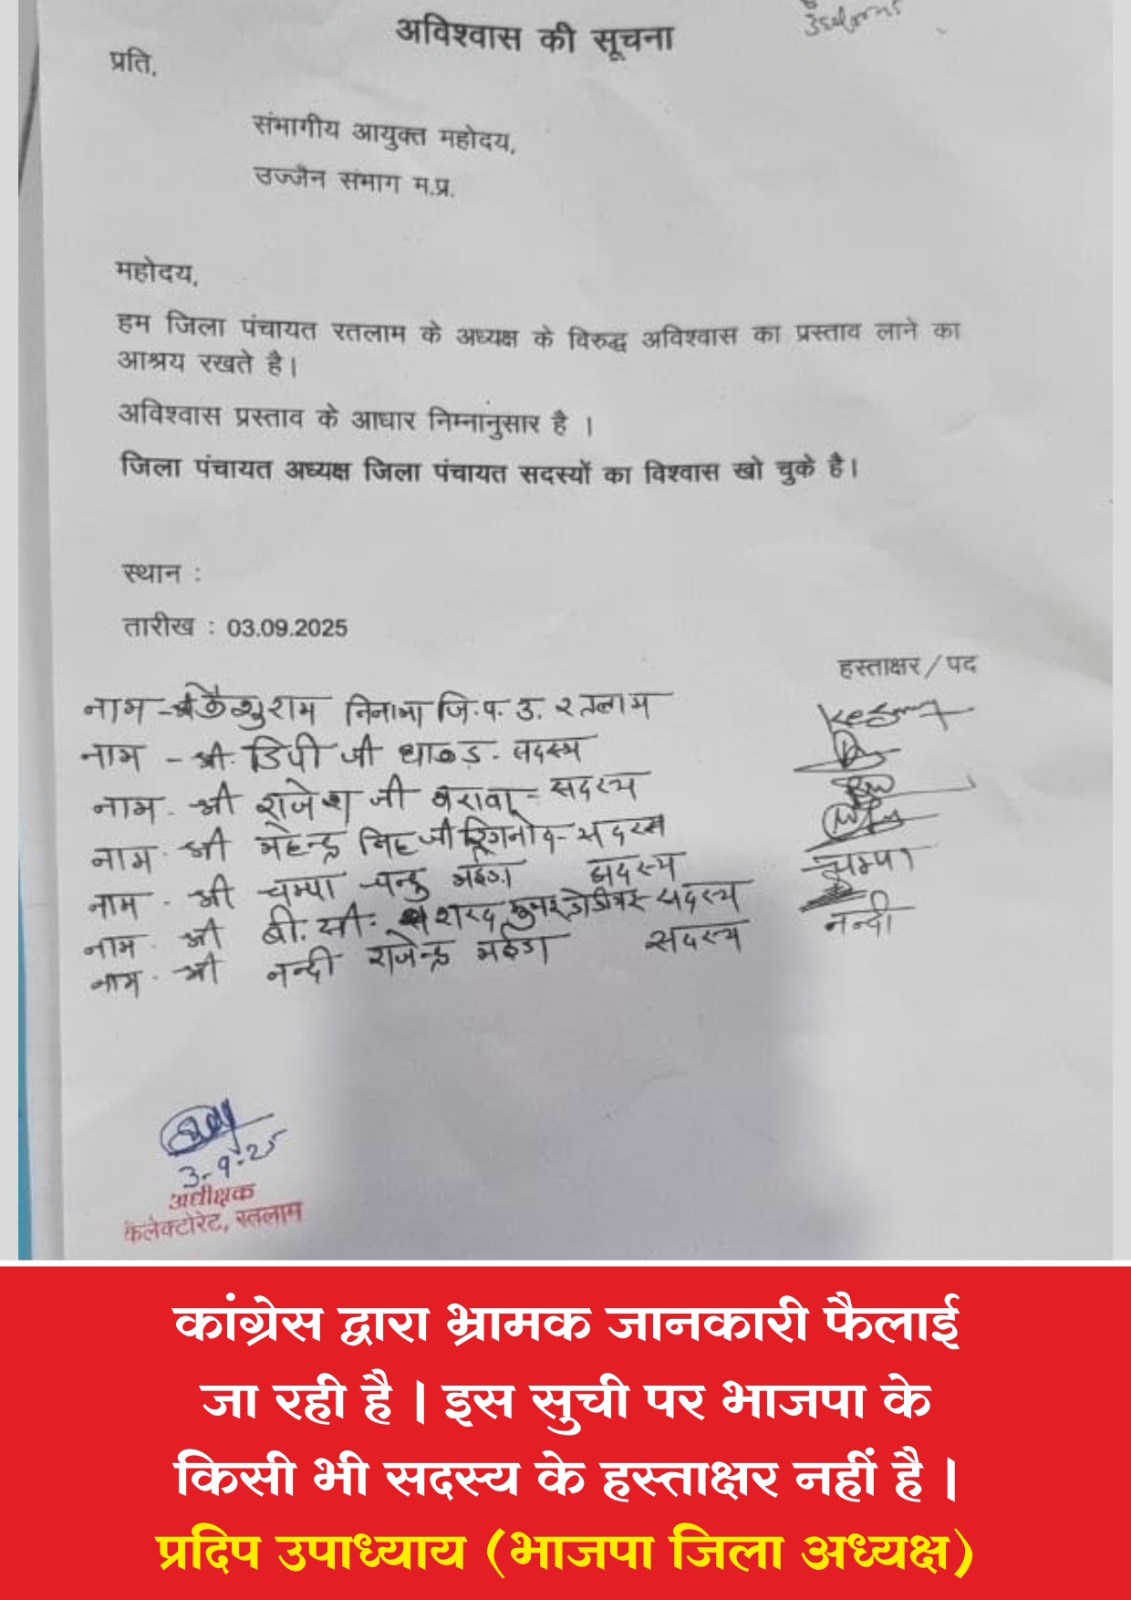 अविश्वास की सूचना
प्रति,
संभागीय आयुक्त महोदय,
उज्जैन संभाग म.प्र.
महोदय,
हम जिला पंचायत रतलाम के अध्यक्ष के विरुद्ध अविश्वास का प्रस्ताव लाने का
आश्रय रखते है।
अविश्वास प्रस्ताव के आधार निम्नांनुसार है ।
जिला पंचायत अध्यक्ष जिला पंचायत सदस्यों का विश्वास खो चुके है।
स्थान :
तारीख : 03.09.2025
हस्ताक्षर / पद
नाम - केशुराम निनामा जि.प.उ. रतलाम
नाम - श्री डिपी जी धाकड़ - सदस्य
नाम - श्री राजेश जी भरावा - सदस्य
नाम - श्री महेन्द्र सिह जी रिंगनोद - सदस्य
नाम - श्री चम्पा चन्दु मईडा सदस्य चम्पा
नाम - श्री शरद कुमार डोडीयार सदस्य
नाम - श्री नन्दी राजेन्द्र मईडा सदस्य नन्दी
3-9-25
अधीक्षक
कलेक्टोरेट, रतलाम
कांग्रेस द्वारा भ्रामक जानकारी फैलाई
जा रही है । इस सुची पर भाजपा के
किसी भी सदस्य के हस्ताक्षर नहीं है ।
प्रदिप उपाध्याय (भाजपा जिला अध्यक्ष)